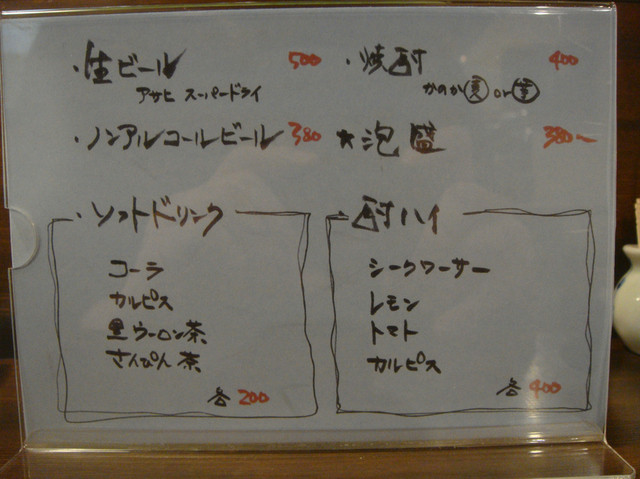 ・生ビール 500
アサヒ スーパードライ
・ノンアルコールビール 380
・焼酎 400
かのか 麦 or 芋
★泡盛 380〜
・ソフトドリンク
コーラ
カルピス
黒ウーロン茶
さんぴん茶
各 200
・酎ハイ
シークワーサー
レモン
トマト
カルピス
各 400